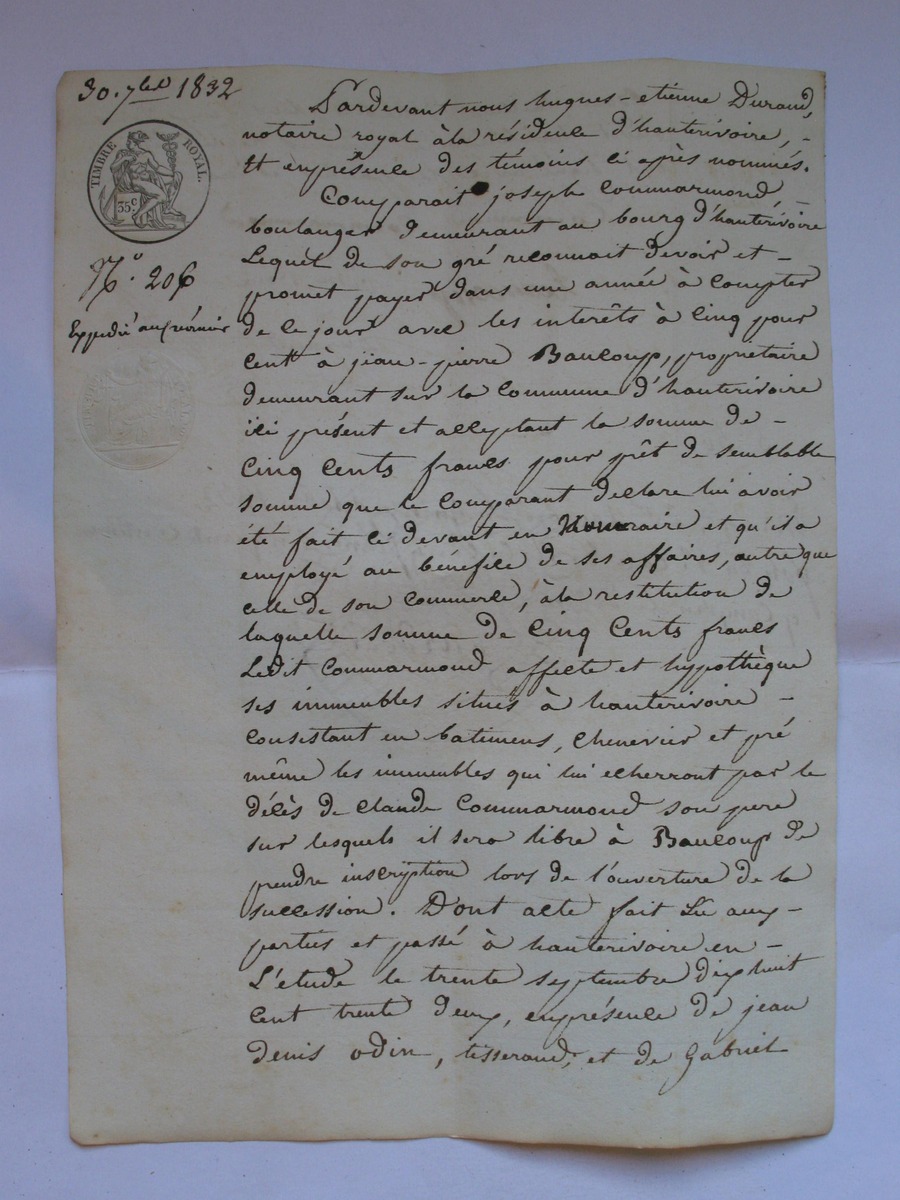 30. 7bre 1832
TIMBRE ROYAL.
35c
No. 206
Expedié au créancier
Pardevant nous hugues-etienne Durand,
notaire royal à la résidence d'hauterivoire, -
Et en présence des témoins ci après nommés.
Comparait joseph Commarmond,
boulanger demeurant au bourg d'hauterivoire
Lequel de son gré reconnait devoir et -
promet payer dans une année à compter
de ce jour avec les interêts à cinq pour
cent à jean-pierre Baucoup, propriétaire
demeurant sur la Commune d'hauterivoire
ici présent et acceptant la somme de -
Cinq Cents francs pour prêt de semblable
somme que le Comparant declare lui avoir
été fait ci devant en Numeraire et qu'il a
employé au bénéfice de ses affaires, autre que
celle de son commerce, à la restitution de
laquelle somme de Cinq Cents francs
Ledit Commarmond affecte et hypothèque
ses immeubles situés à hauterivoire -
Consistant en batimens, chenevier et pré
même les immeubles qui lui echerront par le
décès de claude Commarmond son pere
sur lesquels il sera libre à Baucoup de
prendre inscription lors de l'ouverture de la
succession. Dont acte fait Lu aux -
parties et passé à hauterivoire en -
L'étude le trente septembre dix huit
cent trente deux, en présence de jean
denis odin, tisserand, et de Gabriel